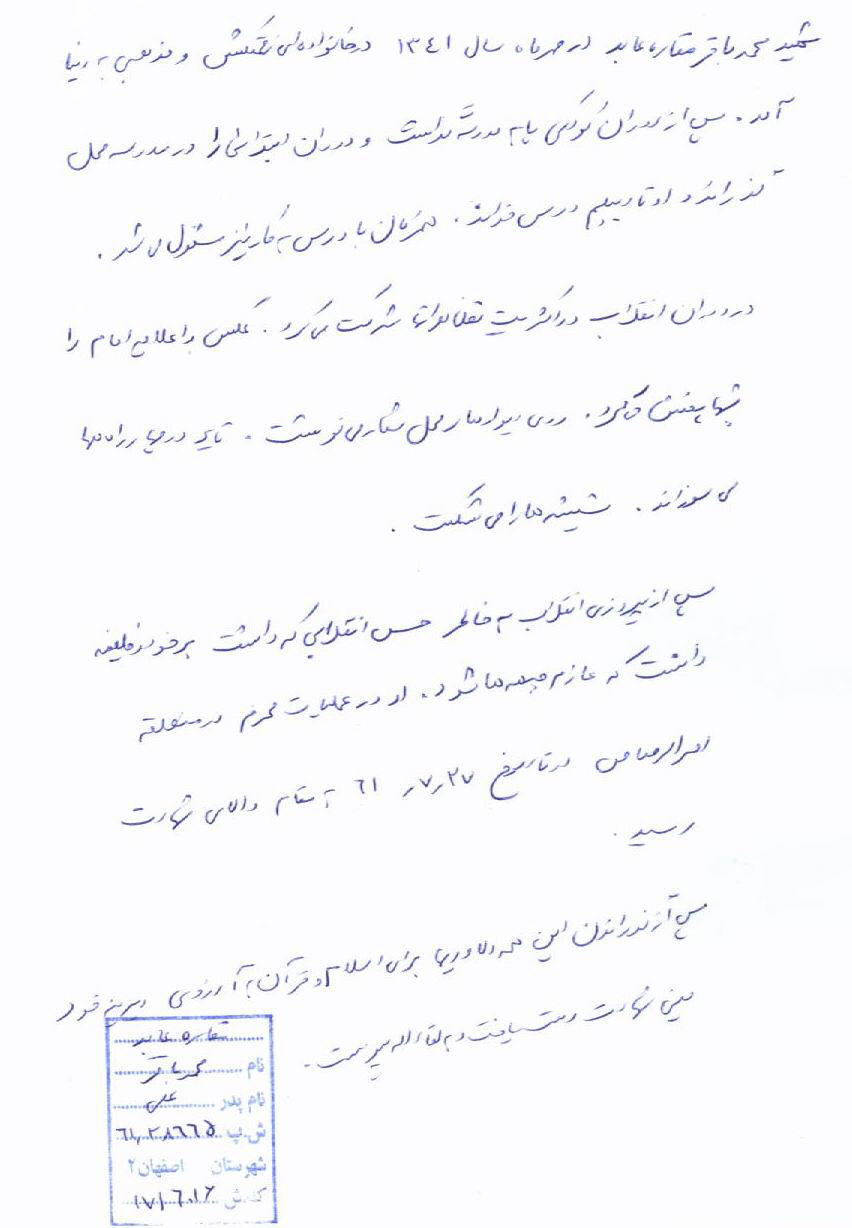 شهید محمد باقر عابد در مهرماه سال ۱۳۴۱ در خانواده‌ای زحمتکش و مذهبی به دنیا
آمد. پس از دوران کودکی پا به مدرسه گذاشت و دوران ابتدائی را در مدرسه محل
گذراند و او تا دیپلم درس خواند. همزمان با درس به کار نیز مشغول می شد.
در دوران انقلاب در اکثریت تظاهراتها شرکت می کرد. عکس و اعلامیه امام را
شبها پخش می کرد. روی دیوارهای محل شعار می نوشت. تایر در چهارراه ها
می سوزاند. شیشه ها را می شکست.
پس از پیروزی انقلاب به خاطر حس انقلابی که داشت بر خود وظیفه
دانست که عازم جبهه ها شود. او در عملیات محرم در منطقه
در تاریخ ۲۷ر۷ر۶۱ به مقام والای شهادت
رسید.
پس از گذراندن این همه دلاوریها برای اسلام و قرآن به آرزوی دیرینه خود
یعنی شهادت دست یافت و به لقاء اله پیوست.
عابد
نام محمد باقر
نام پدر علی
ش.پ ۶۱,۲۸۶۶۵
شهرستان اصفهان ۲